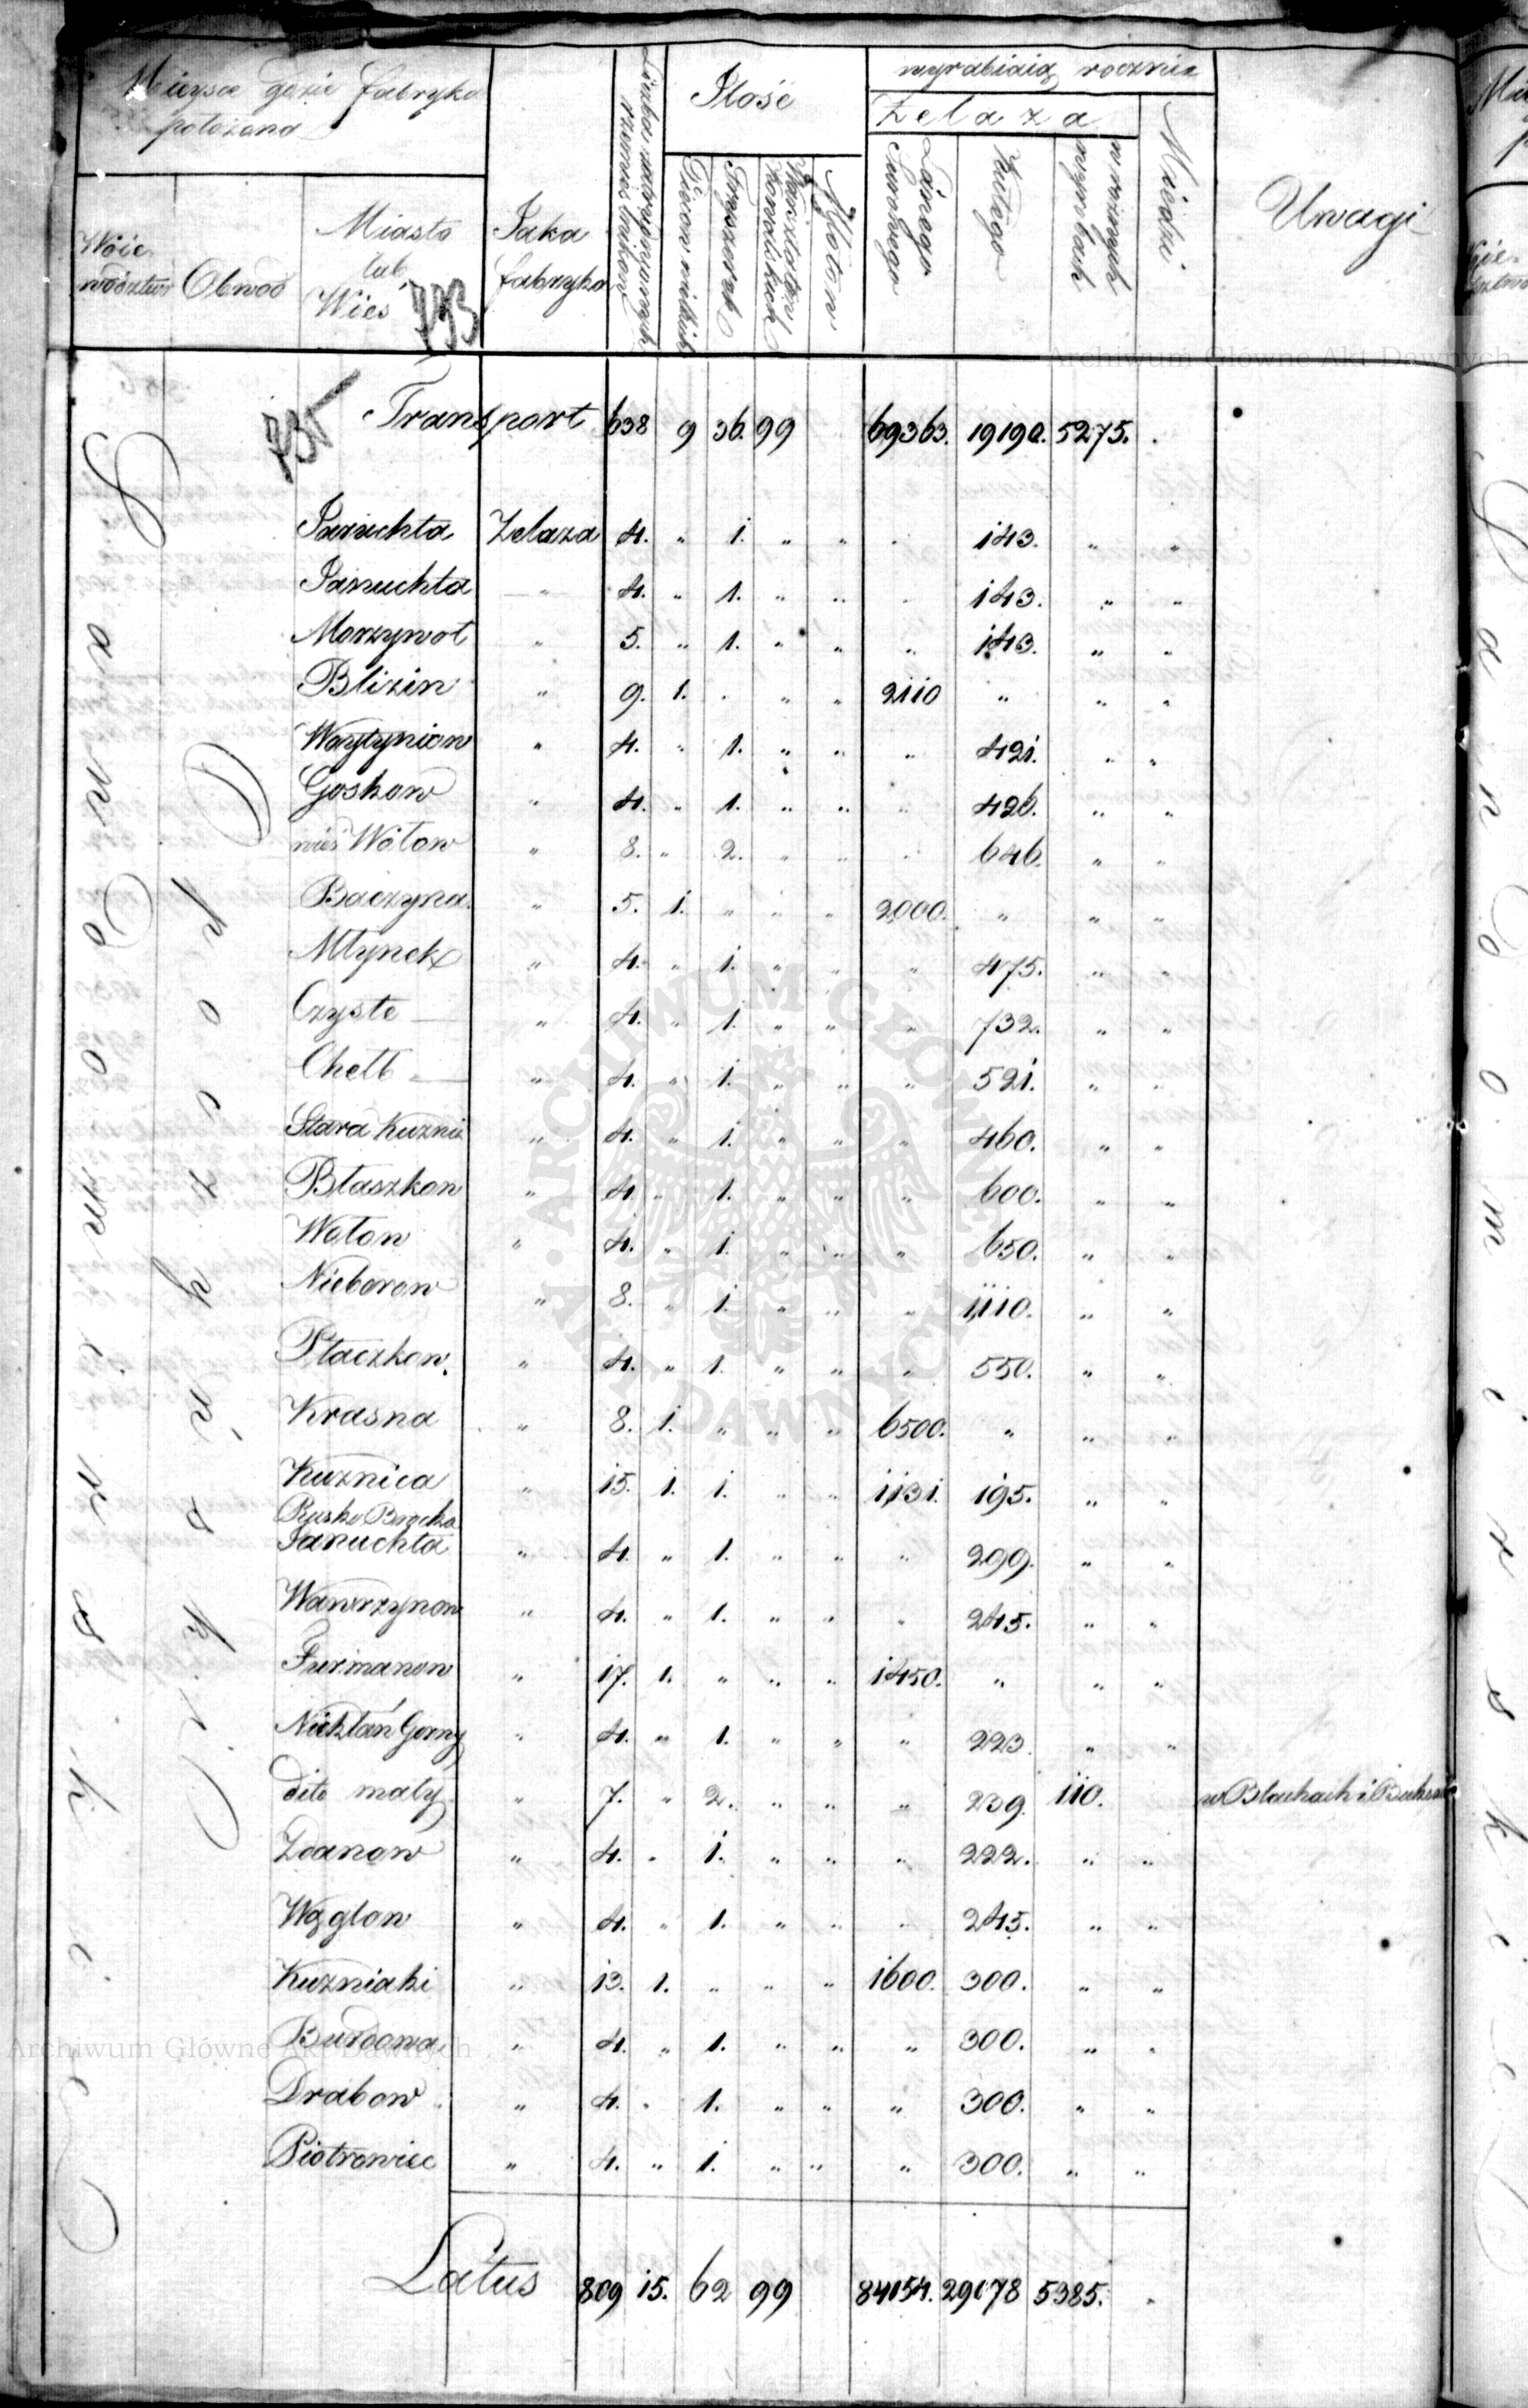 Mieysce gdzie fabryka
położona
Woie-
wodztwo
Obwod
Miasto
lub
Wies
793
Jaka
fabryka
Liczba zatrudnionych
rzemieslnikow
Ilość
Piecow wielkich
Fryszerek
Warsztatow
kowalskich
Młotow
wyrabiaią rocznie
Żelaza
Lanego
Surowego
Kutego
w roznych
wyrobach
Miedzi
Uwagi
Sandomirskie
Opoczyński
795
Transport 638 9 36. 99 69363. 19190. 5275. .
Januchta Zelaza 4. " 1. " " " 143. " "
Januchta " 4. " 1. " " " 143. " "
Morzywot " 5. " 1. " " " 143. " "
Blizin " 9. 1. " " " 2110 " " "
Wąglynion " 4. " 1. " " " 421. " "
Goskow " 4. " 1. " " " 426. " "
wieś Wołow " 8. " 2. " " " 646. " "
Baczyna " 5. 1. " " " 2000. " " "
Młynek " 4. " 1. " " " 475. " "
Czyste " 4. " 1. " " " 732. " "
Chełb " 4. " 1. " " " 521. " "
Stara Kuznia " 4. " 1. " " " 460. " "
Błaszkow " 4. " 1. " " " 600. " "
Wołow " 4. " 1. " " " 650. " "
Nieborow " 8. " 1. " " " 1,110. " "
Płaczkow. " 4. " 1. " " " 550. " "
Krasna " 8. 1. " " " 6500. " " "
Kuznica " 15. 1. 1. " " 1,131. 195. " "
Rusko Brocka
Januchta " 4. " 1. " " " 299. " "
Wawrzynow " 4. " 1. " " " 245. " "
Furmanow " 17. 1. " " " 1450. " " "
Niekłań Gorny " 4. " 1. " " " 223. " "
dito mały " 7. " 2. " " " 239. 110. w Blachach i
Zdanow " 4. " 1. " " " 222. " "
Wąglow " 4. " 1. " " " 245. " "
Kuzniaki " 13. 1. " " " 1600. 300. " "
Burdowa " 4. " 1. " " " 300. " "
Drabow " 4. " 1. " " " 300. " "
Piotrowiec " 4. " 1. " " " 300. " "
Latus 809 15. 62 99 84154. 29078 5385. "
Archiwum Główne Akt Dawnych
ARCHIWUM GŁÓWNE AKT DAWNYCH
Archiwum Główne Akt Dawnych